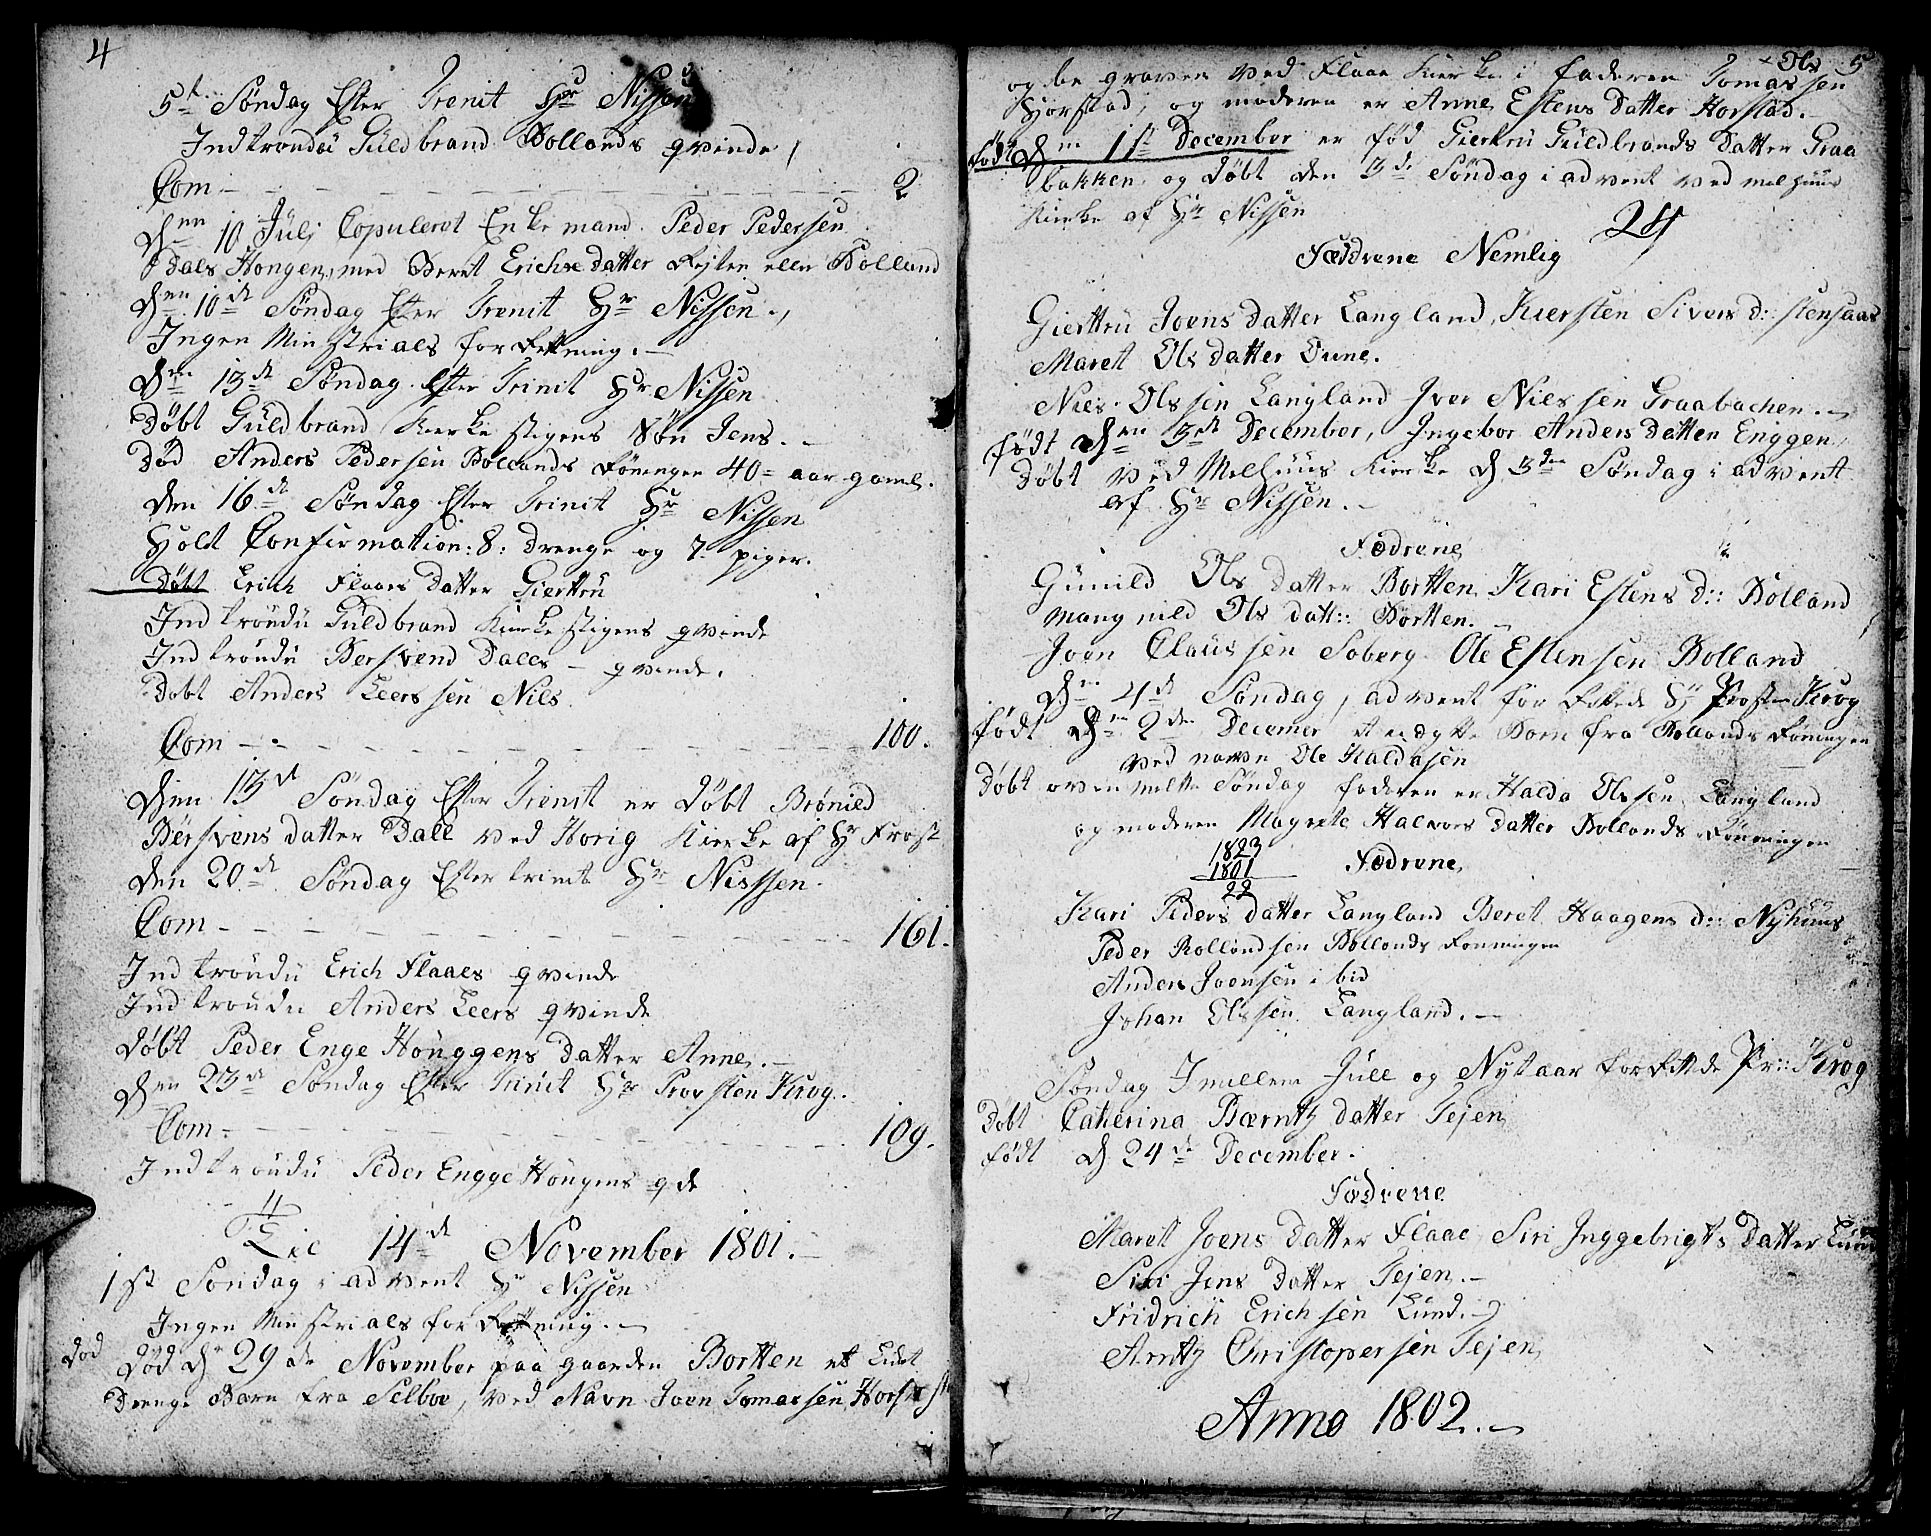 4
5te Søndag Efter Trenit Hr Nissen
Indtroudü Güldbrand Bollands qvinde,
Com - - - 2
Den 10 Julj Copulerot Enkemand Peder Pedersen
Dals Hougen, med Beret Erichsdatter Fejten eller Bolland
Den 10de Søndag Efter Trenit Hr Nissen.,
Ingen Ministrials forretning.
Den 13de Søndag Efter Trinit Hr Nissen
Døbt Güldbrand Kierkestigens Søn Jens.
Død Anders Pedersen Bollands Føningen 40 = aar gaml.
Den 16de Søndag Efter Trinit Hr Nissen
Holt Confirmation: 8: drenge og 7 piger.
Døbt Erich Flaaes Datter Gierttru
Indtroudü Güldbrand Kierkestigens qvinde
Indtroudü Bersvend Dales - qvinde.
Døbt Anders Leers sen Nils
Com - - - 100.
Den 13de Søndag Efter Trenit er døbt Brønild
Bersvens datter Dall ved Horig Kierke af Hr Frost
Den 20de Søndag Efter trinit Hr Nissen.
Com - - - 161.
Indtroudü Erich Flaaes qvinde
Indtroudü Anders Leers qvinde
Døbt Peder Enge Hougens datter Anne.
Den 23de Søndag Efter Trinit Hr Provsten Krog.
Com - - - 109.
Indtroudü Peder Engge Hougens qde
14de November 1801.
1st Søndag i advent Hr Nissen
Ingen Ministrials forretning.
Død Død d. 29de November paa gaarden Bortten et Lidet
Drenge Barn fra Selboe, ved Navn Joen Tomassen Horst
Ols 5
og begraven ved Flaae Kierke i faderen Tomassen
Horstad, og moderen er Anne Estens Datter Horstad.
født Den 11te December er fød Giertru Güldbrands Datter Graa
bakken og døbt den 3de Søndag i advent ved melhuus
Kirke af Hr Nissen
24
Faddrene Nemlig
Gierttru Joens datter Langland, Kiersten Sivers d:: stensaas
Marett Ols datter Oune.
Niels Olssen Langland Iver Nielssen Graabachen.
født Den 3de December, Ingebor Anders Datter Enggen
Døbt ved Melhuus Kierke d. 3de Søndag i advent
af Hr Nissen.
Fadrene
Günild Ols datter Bortten Kari Estens d:: Bolland
Mangnild Ols datt:: Bortten.
Joen Claussen Soberg Ole Estensen Bolland
Den 4de Søndag, advent forrettede Hr Prosten Krog
født den 2den Decemer et udgtte Barn fra Bollands Føningen
ved navn Ole Haldosen
Døbt ovenmelte Søndag faderen er Haldo Olssen Langland
og moderen Magrete Halvors datter Bollands Fønningen
1823
1801
22
Fadrene
Kari Peders datter Langland Beret Haagens d:: Nyhuus
Peder Rollandsen Bollands Fonningen
Anders Joensen i bid
Johan Olssen Langland.
Søndag Imellem Jull og Nytaar forrettede Pr:: Krog
Døbt Catherina Bærntz datter Tejen
født d. 24de December.
Fadrene
Marett Joens datter Flaae Siri Inggebrigts datter Lund
Siri Jens Datter Tejen.
Fridrich Erichsen Lund.
Arntz Christopersen Tejen
Anno 1802.